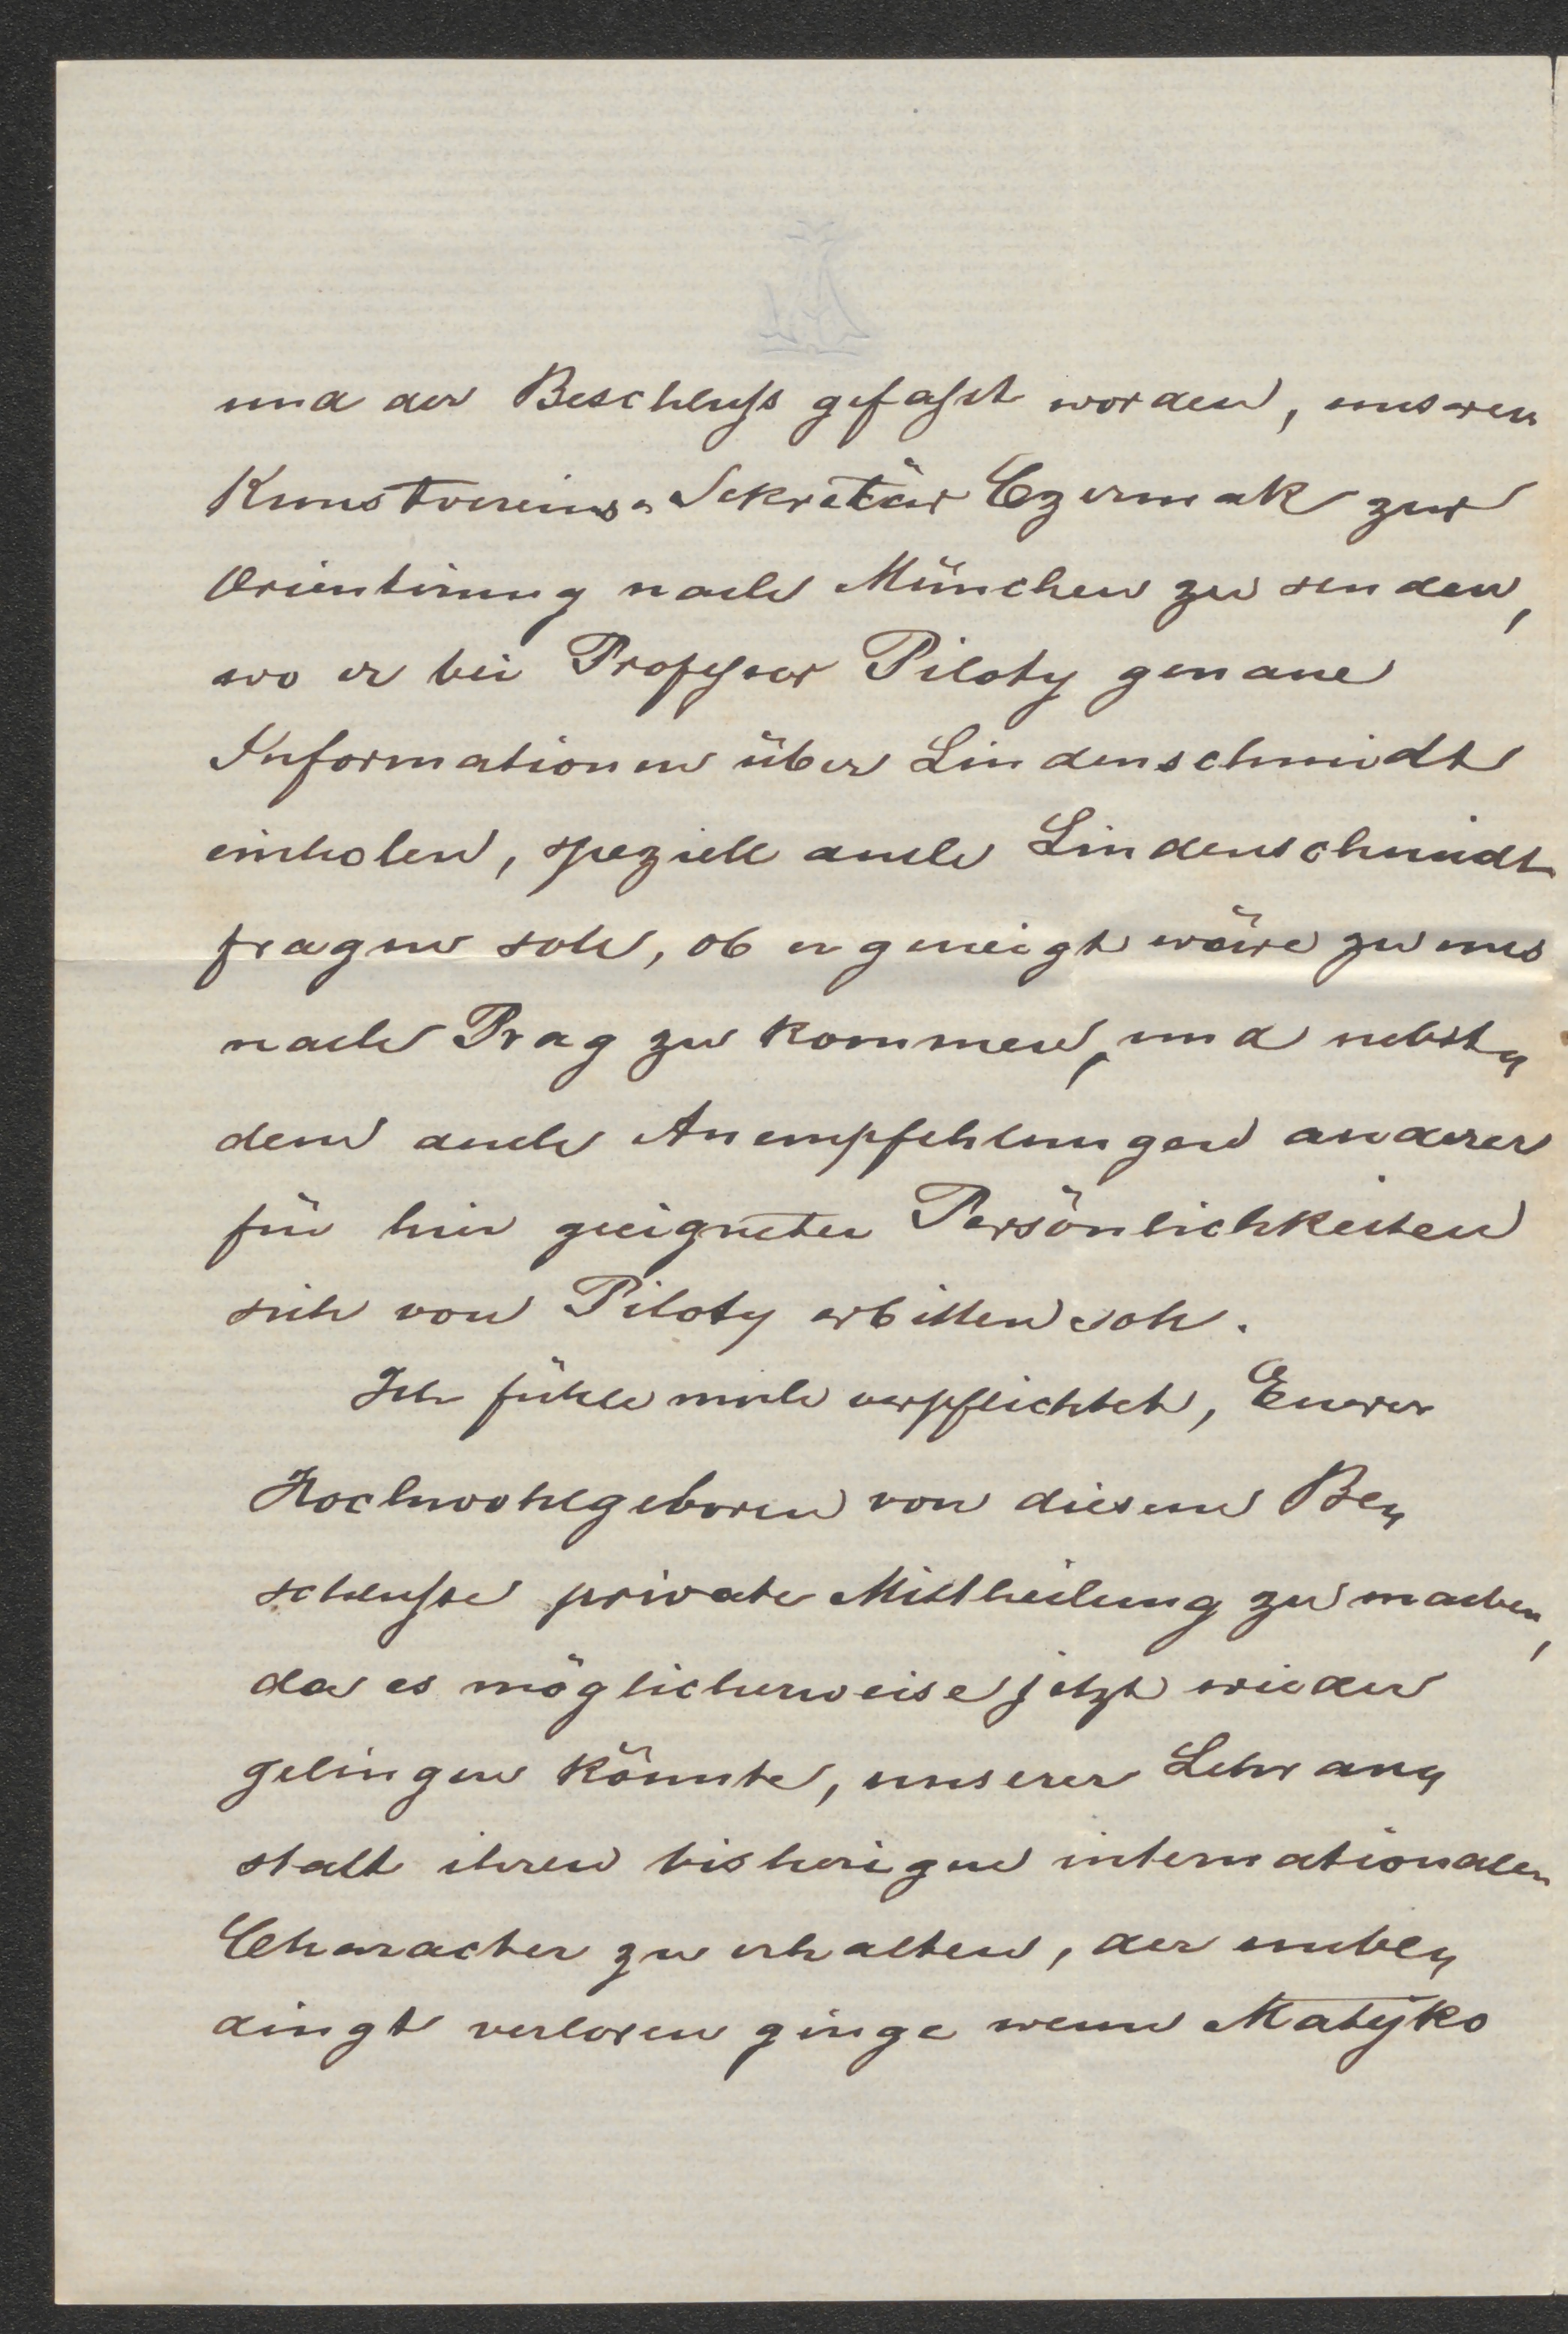 und der Beschluß gefaßt worden, unseren
Kunstvereins-Sekretär Czermak zur
Orientirung nach München zu senden,
wo er bei Professor Piloty genaue
Informationen über Lindenschmidt
einholen, speziell auch Lindenschmidt
fragen soll, ob er geneigt wäre zu uns
nach Prag zu kommen, und nebst-
dem auch Anempfehlungen anderer
für hier geeigneter Persönlichkeiten
sich von Piloty erbitten soll.
Ich fühle mich verpflichtet, Eurer
Hochwohlgeboren von diesem Be-
schluße private Mittheilung zu machen,
da es möglicherweise jetzt wieder
gelingen könnte, unserer Lehran-
stalt ihren bisherigen internationalen
Character zu erhalten, der unbe-
dingt verloren ginge wenn Matejko